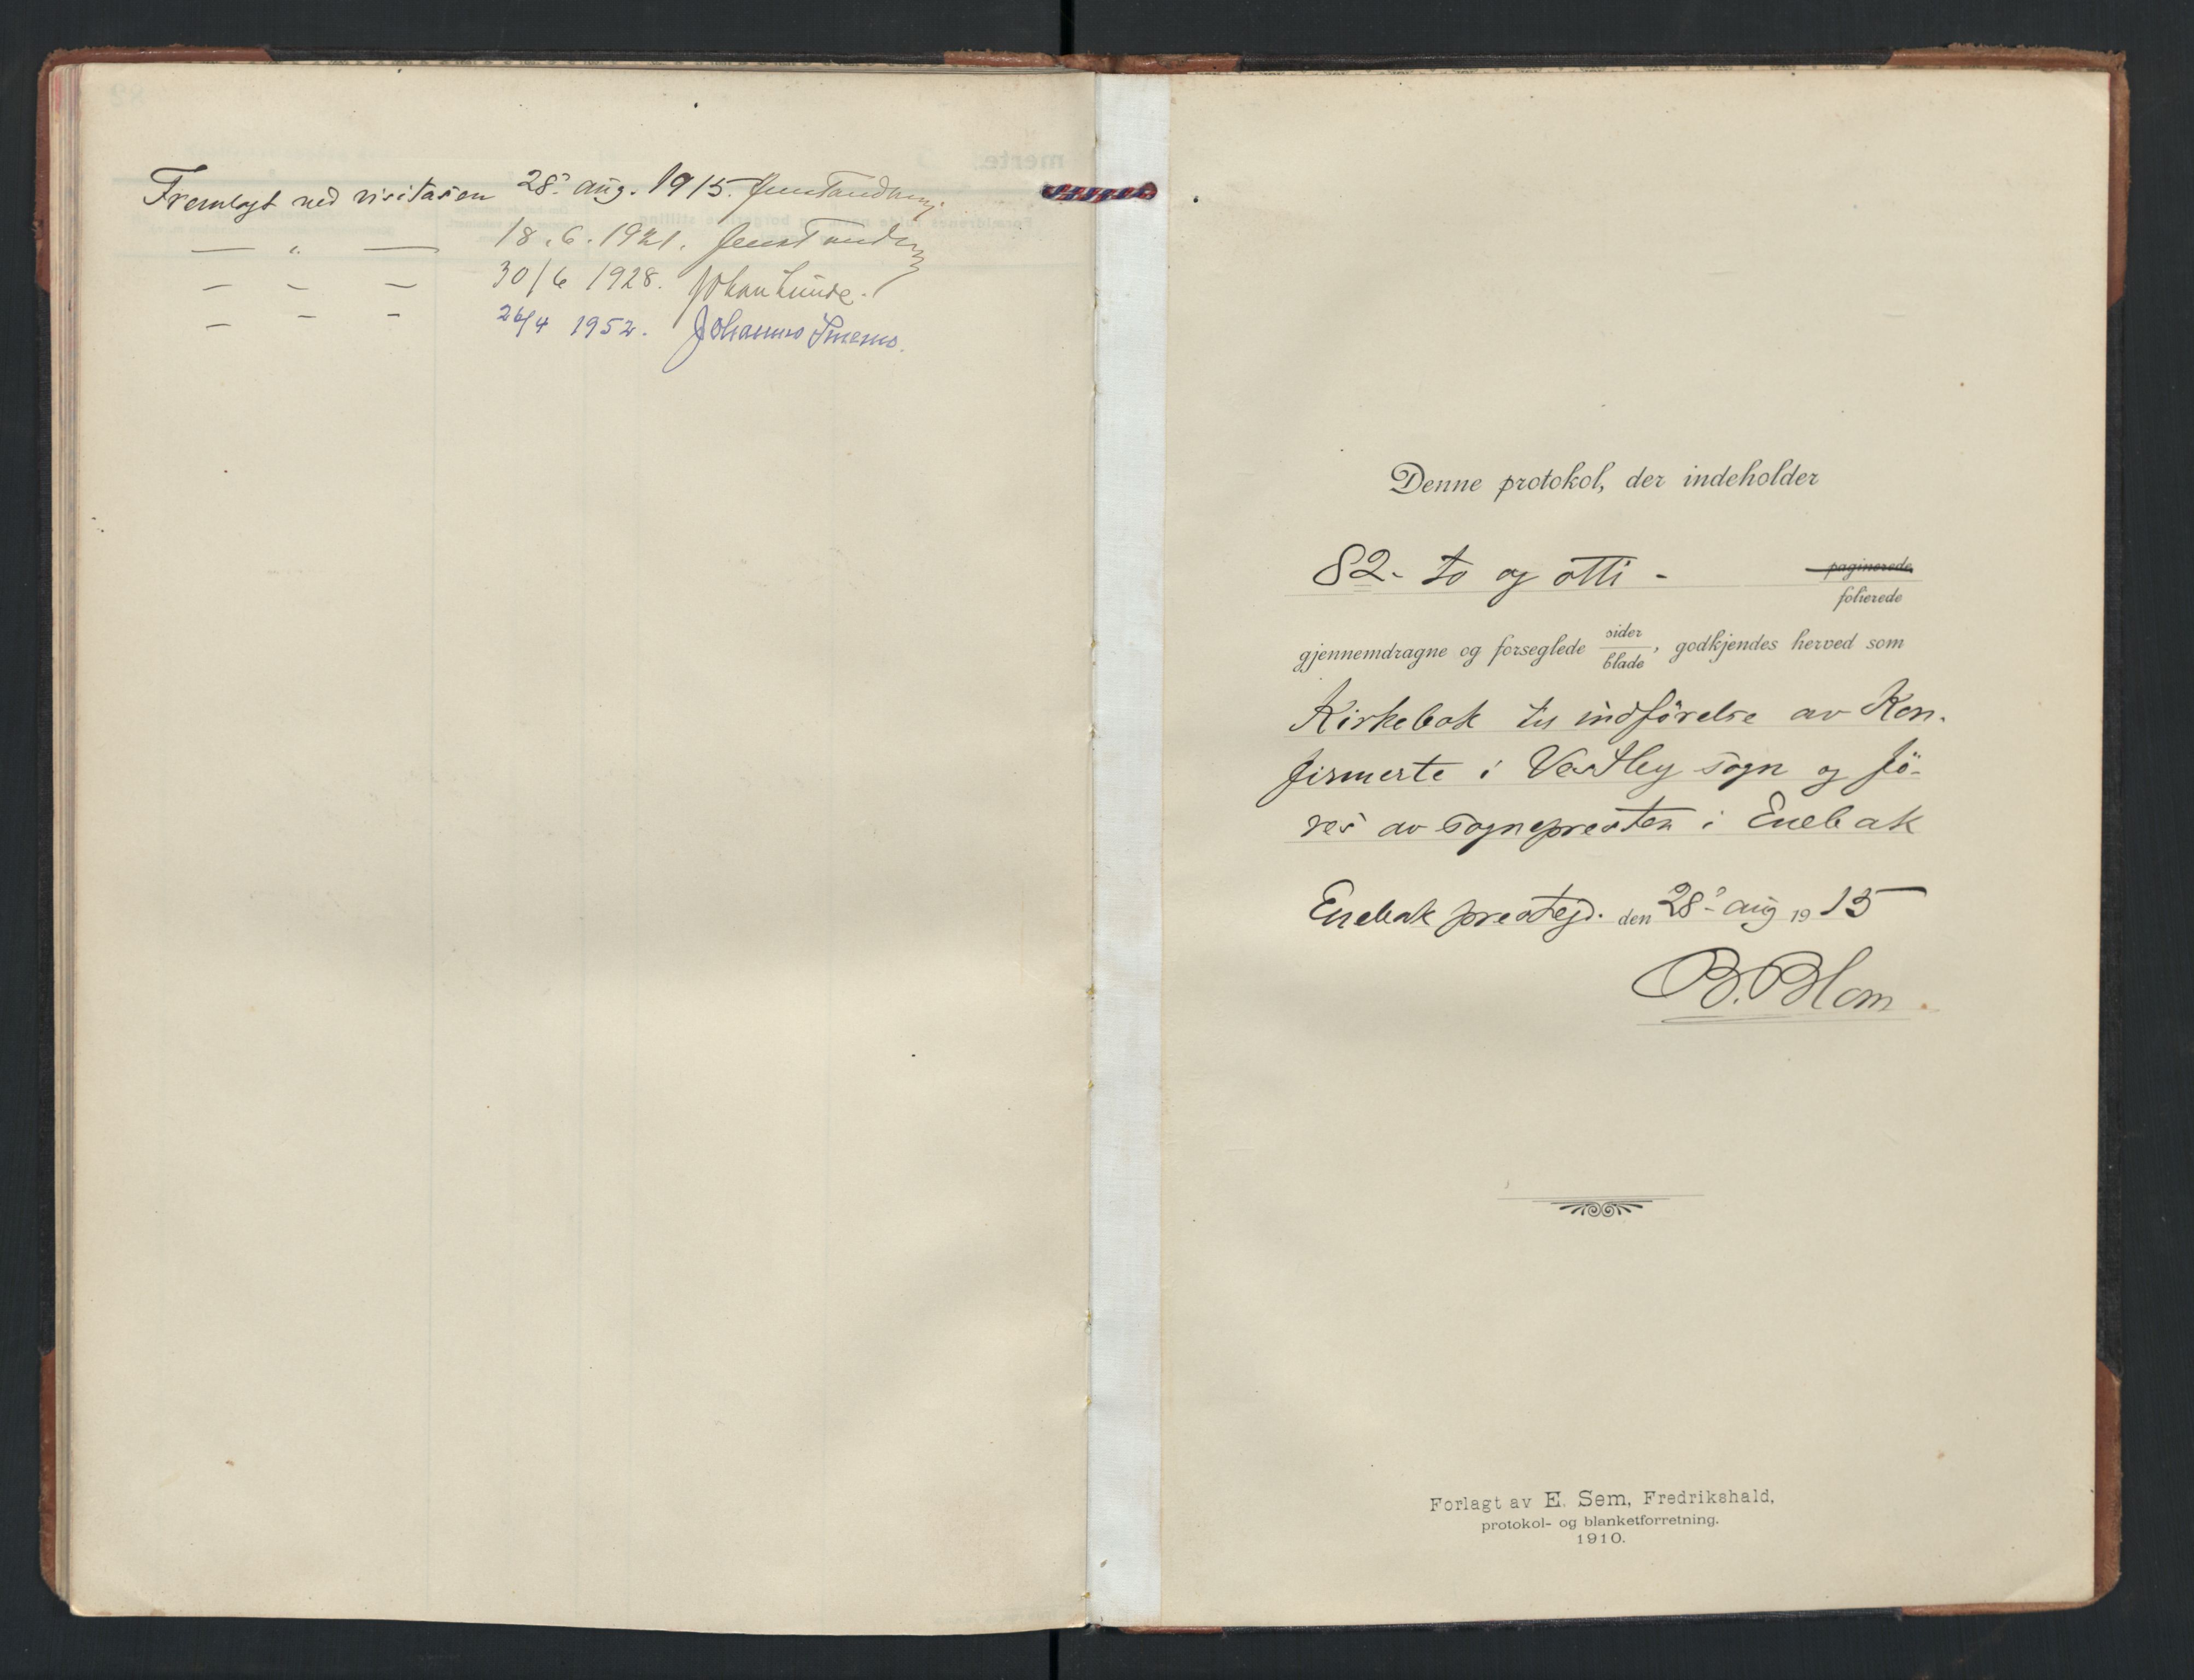 Fremlagt ved visitasen 28. aug. 1915. Jens Tandberg
— " — 18.6.1921. Jens Tandberg
— — — 30/6 1928. Johan Lunde.
— — — 26/4 1952. Johannes Smemo.
Denne protokol, der indeholder
82 - to og otti -
paginerede
folierede
gjennemdragne og forseglede sider/blade, godkjendes herved som
Kirkebok til indførelse av Kon-
firmerte i Vestby sogn og fö-
res av sognepresten i Enebak
Enebak prestegj. den 28. aug 1915
B. Blom
Forlagt av E. Sem, Fredrikshald,
protokol- og blanketforretning.
1910.